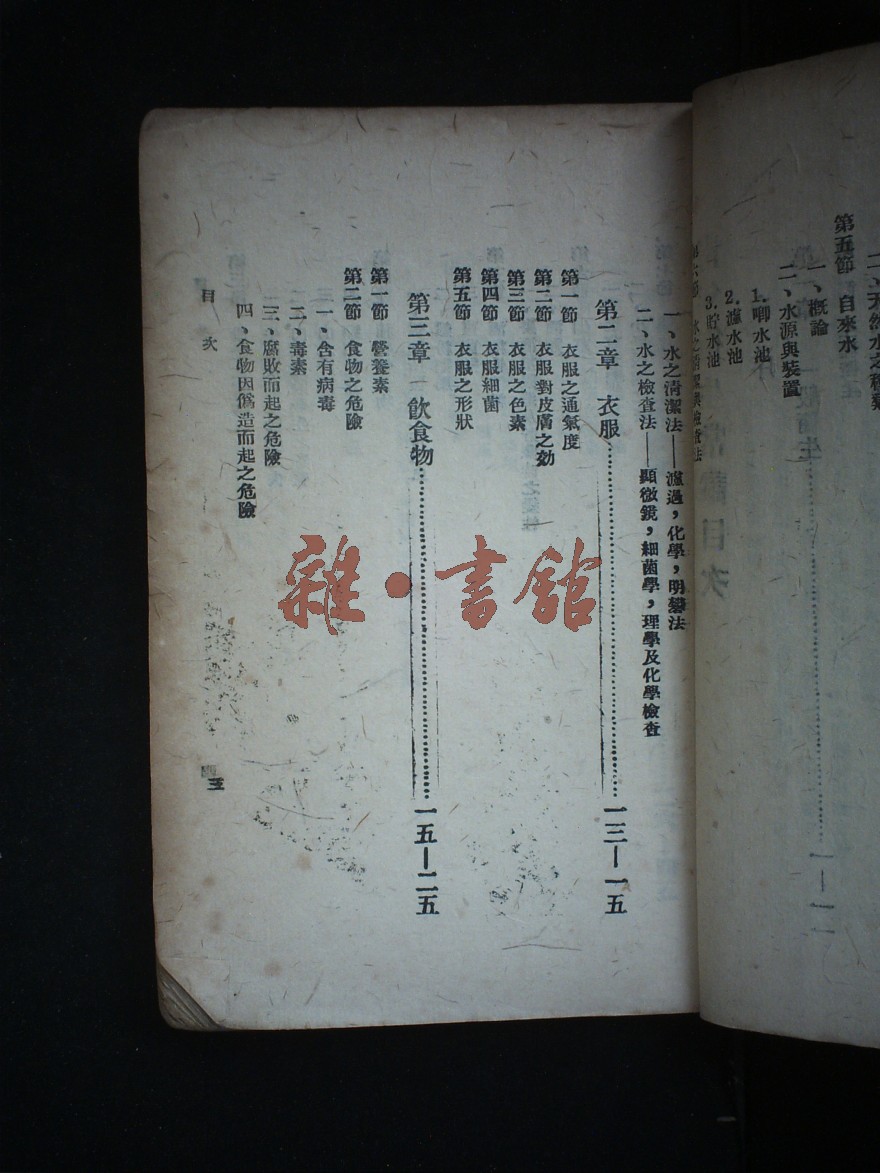 二、天然水之種類
第五節　自來水
一、概論
二、水源與裝置
1. 唧水池
2. 濾水池
3. 貯水池
第六節　水之清潔與檢查法
一、水之清潔法——濾過，化學，明礬法
二、水之檢查法——顯微鏡，細菌學，理學及化學檢查
第二章　衣服……一三—一五
第一節　衣服之通氣度
第二節　衣服對皮膚之効
第三節　衣服之色素
第四節　衣服細菌
第五節　衣服之形狀
第三章　飲食物……一五—二五
第一節　營養素
第二節　食物之危險
一、含有病毒
二、毒素
三、腐敗而起之危險
四、食物因僞造而起之危險
目次
三
雜·書館